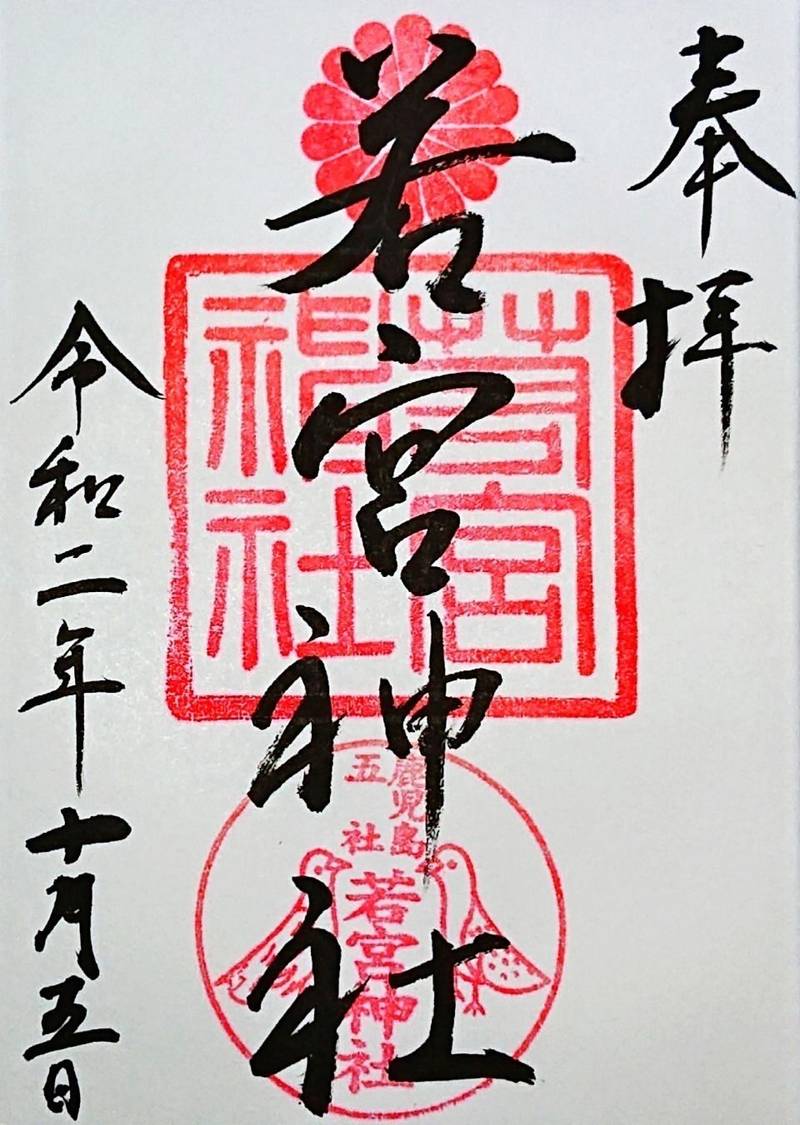 奉拝
若宮神社
若宮
神社
鹿児島
五社
若宮神社
令和二年十月五日